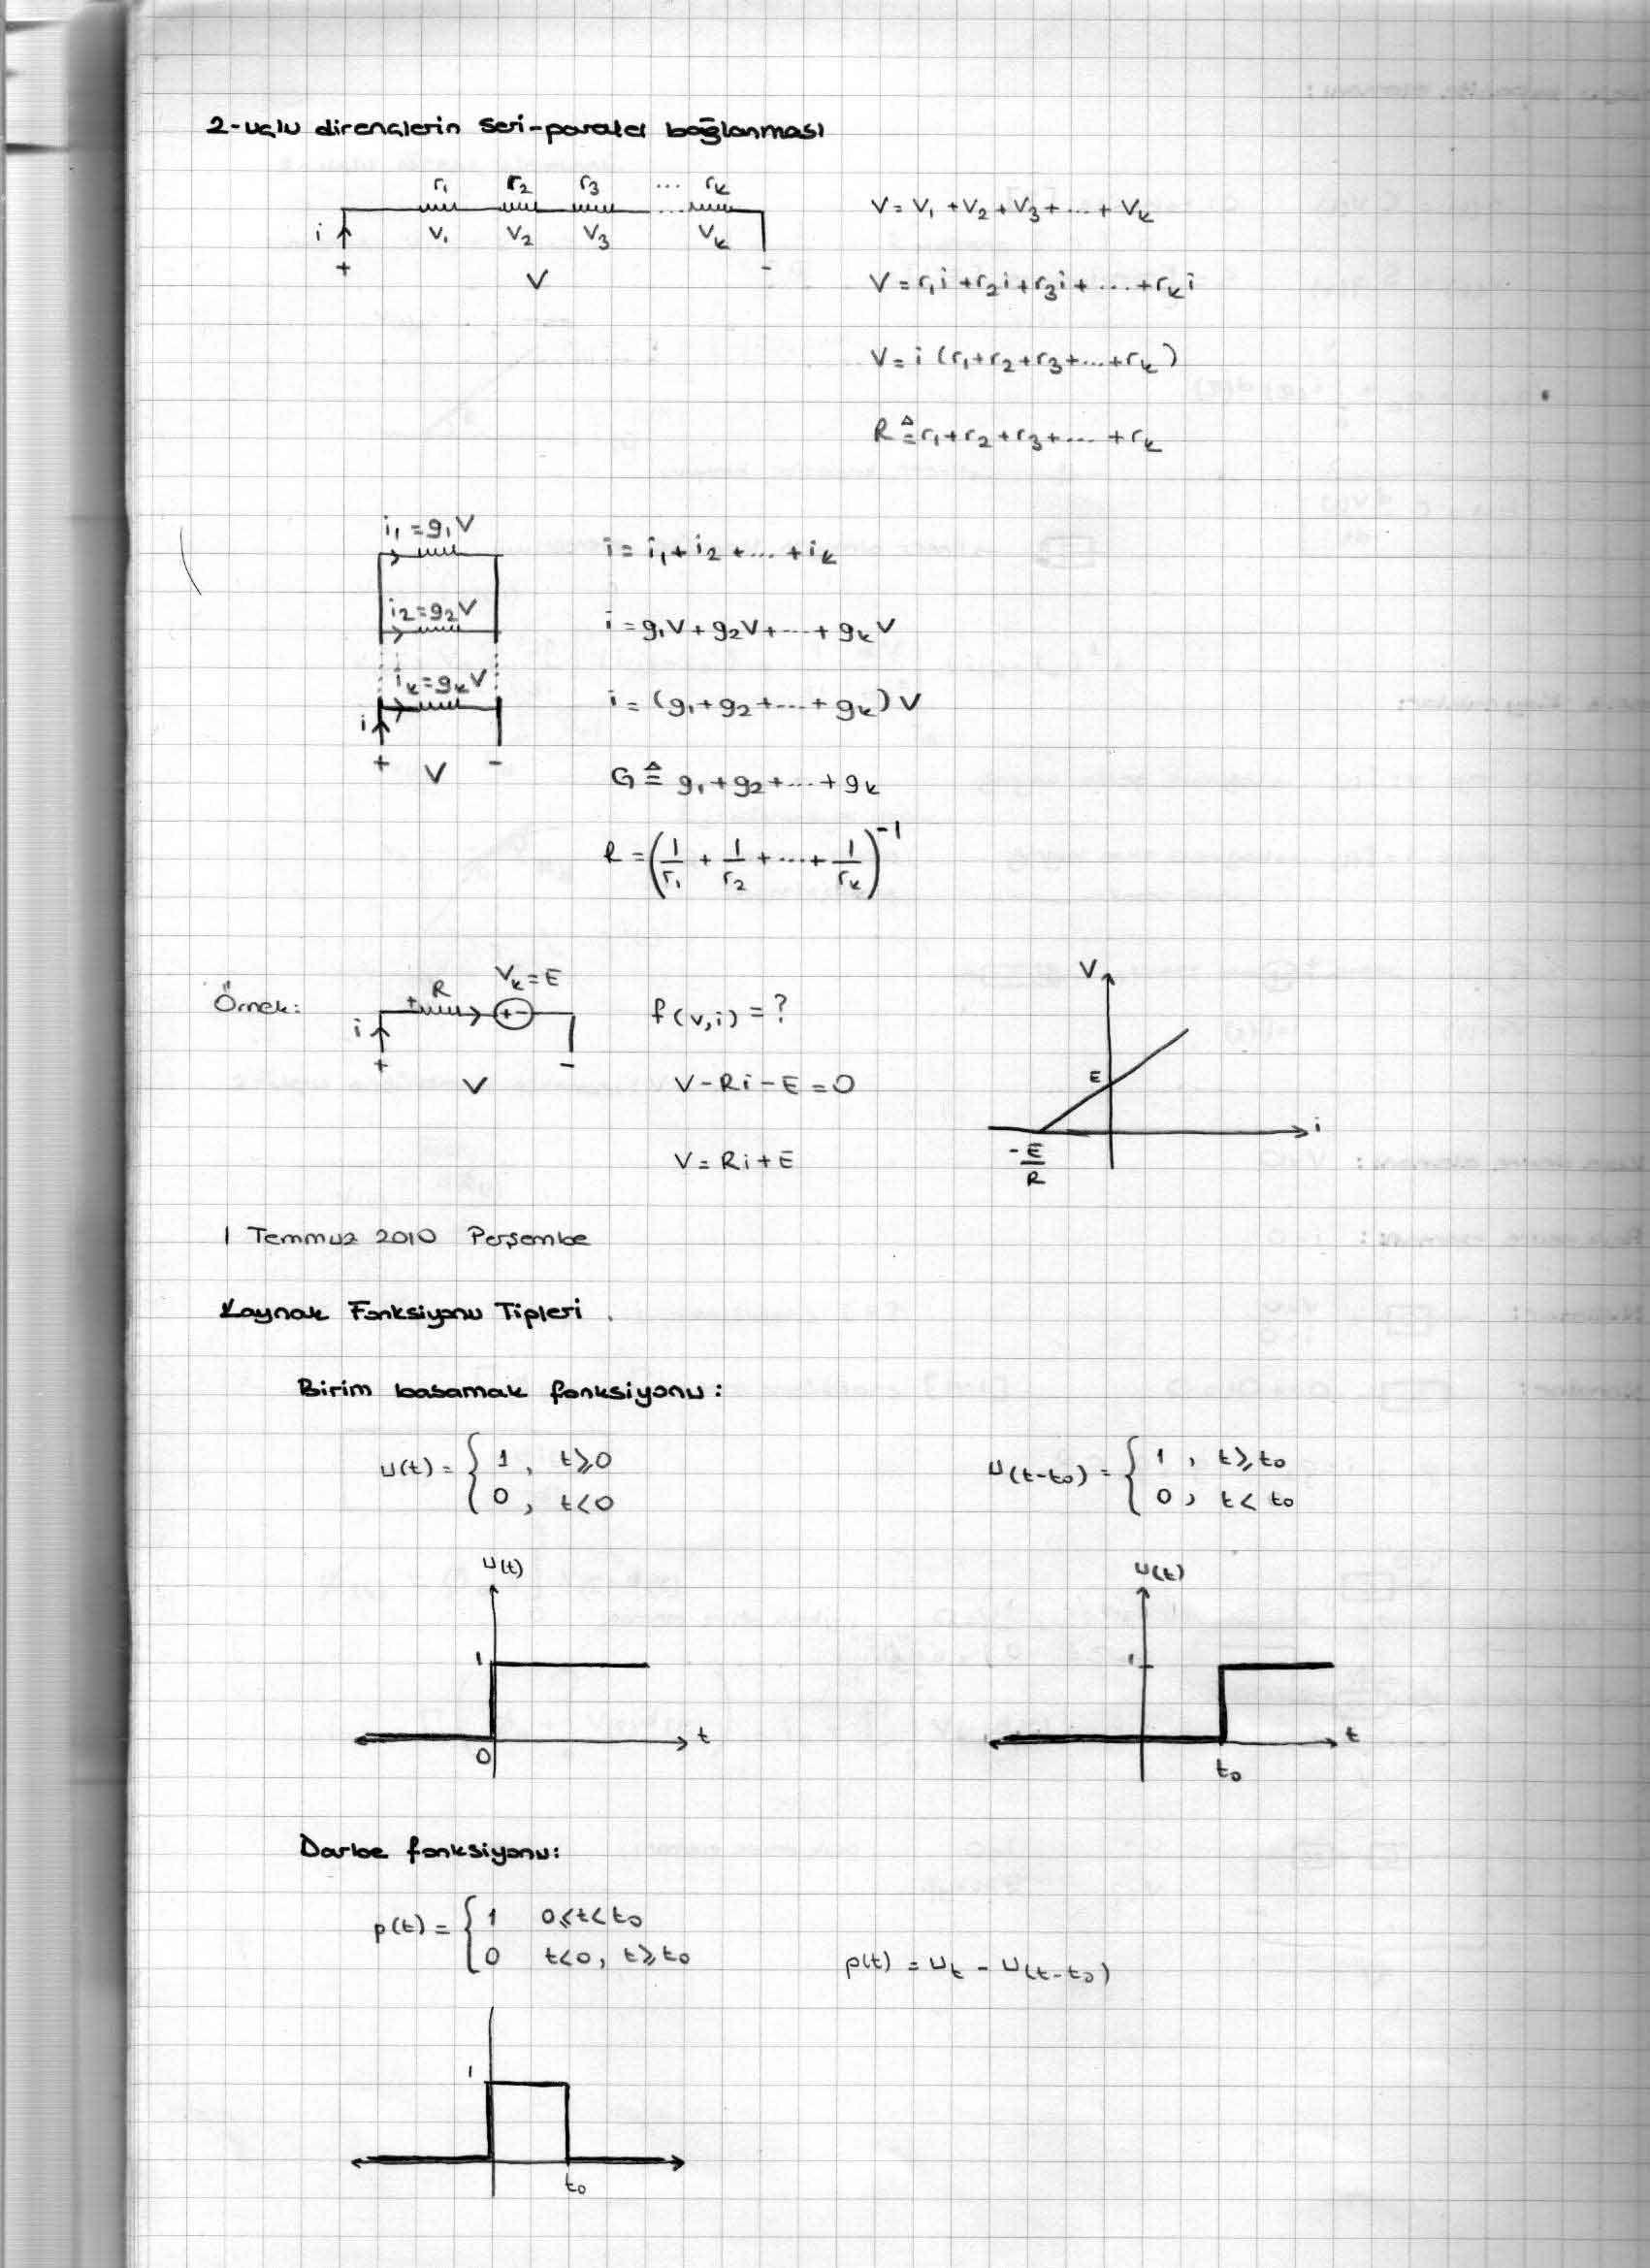 2-uçlu dirençlerin seri-paralel bağlanması
r₁ r₂ r₃ ... rₖ
i V₁ V₂ V₃ Vₖ
+ V -
V = V₁ + V₂ + V₃ + ... + Vₖ
V = r₁i + r₂i + r₃i + ... + rₖi
V = i (r₁ + r₂ + r₃ + ... + rₖ)
R ≜ r₁ + r₂ + r₃ + ... + rₖ
i₁ = g₁V
i₂ = g₂V
iₖ = gₖV
i
+ V -
i = i₁ + i₂ + ... + iₖ
i = g₁V + g₂V + ... + gₖV
i = (g₁ + g₂ + ... + gₖ) V
G ≜ g₁ + g₂ + ... + gₖ
R = (1/r₁ + 1/r₂ + ... + 1/rₖ)⁻¹
Örnek:
R Vₖ = E
+ + -
i
+ V -
f(v,i) = ?
V - Ri - E = 0
V = Ri + E
V
E
i
-E/R
1 Temmuz 2010 Perşembe
Kaynak Fonksiyonu Tipleri
Birim basamak fonksiyonu:
u(t) = { 1 , t ≥ 0
0 , t < 0
u(t-t₀) = { 1 , t ≥ t₀
0 , t < t₀
u(t)
1
0 t
u(t)
1
t₀ t
Darbe fonksiyonu:
p(t) = { 1 0 ≤ t < t₀
0 t<0, t ≥ t₀
p(t) = uₜ - u(t-t₀)
1
t₀